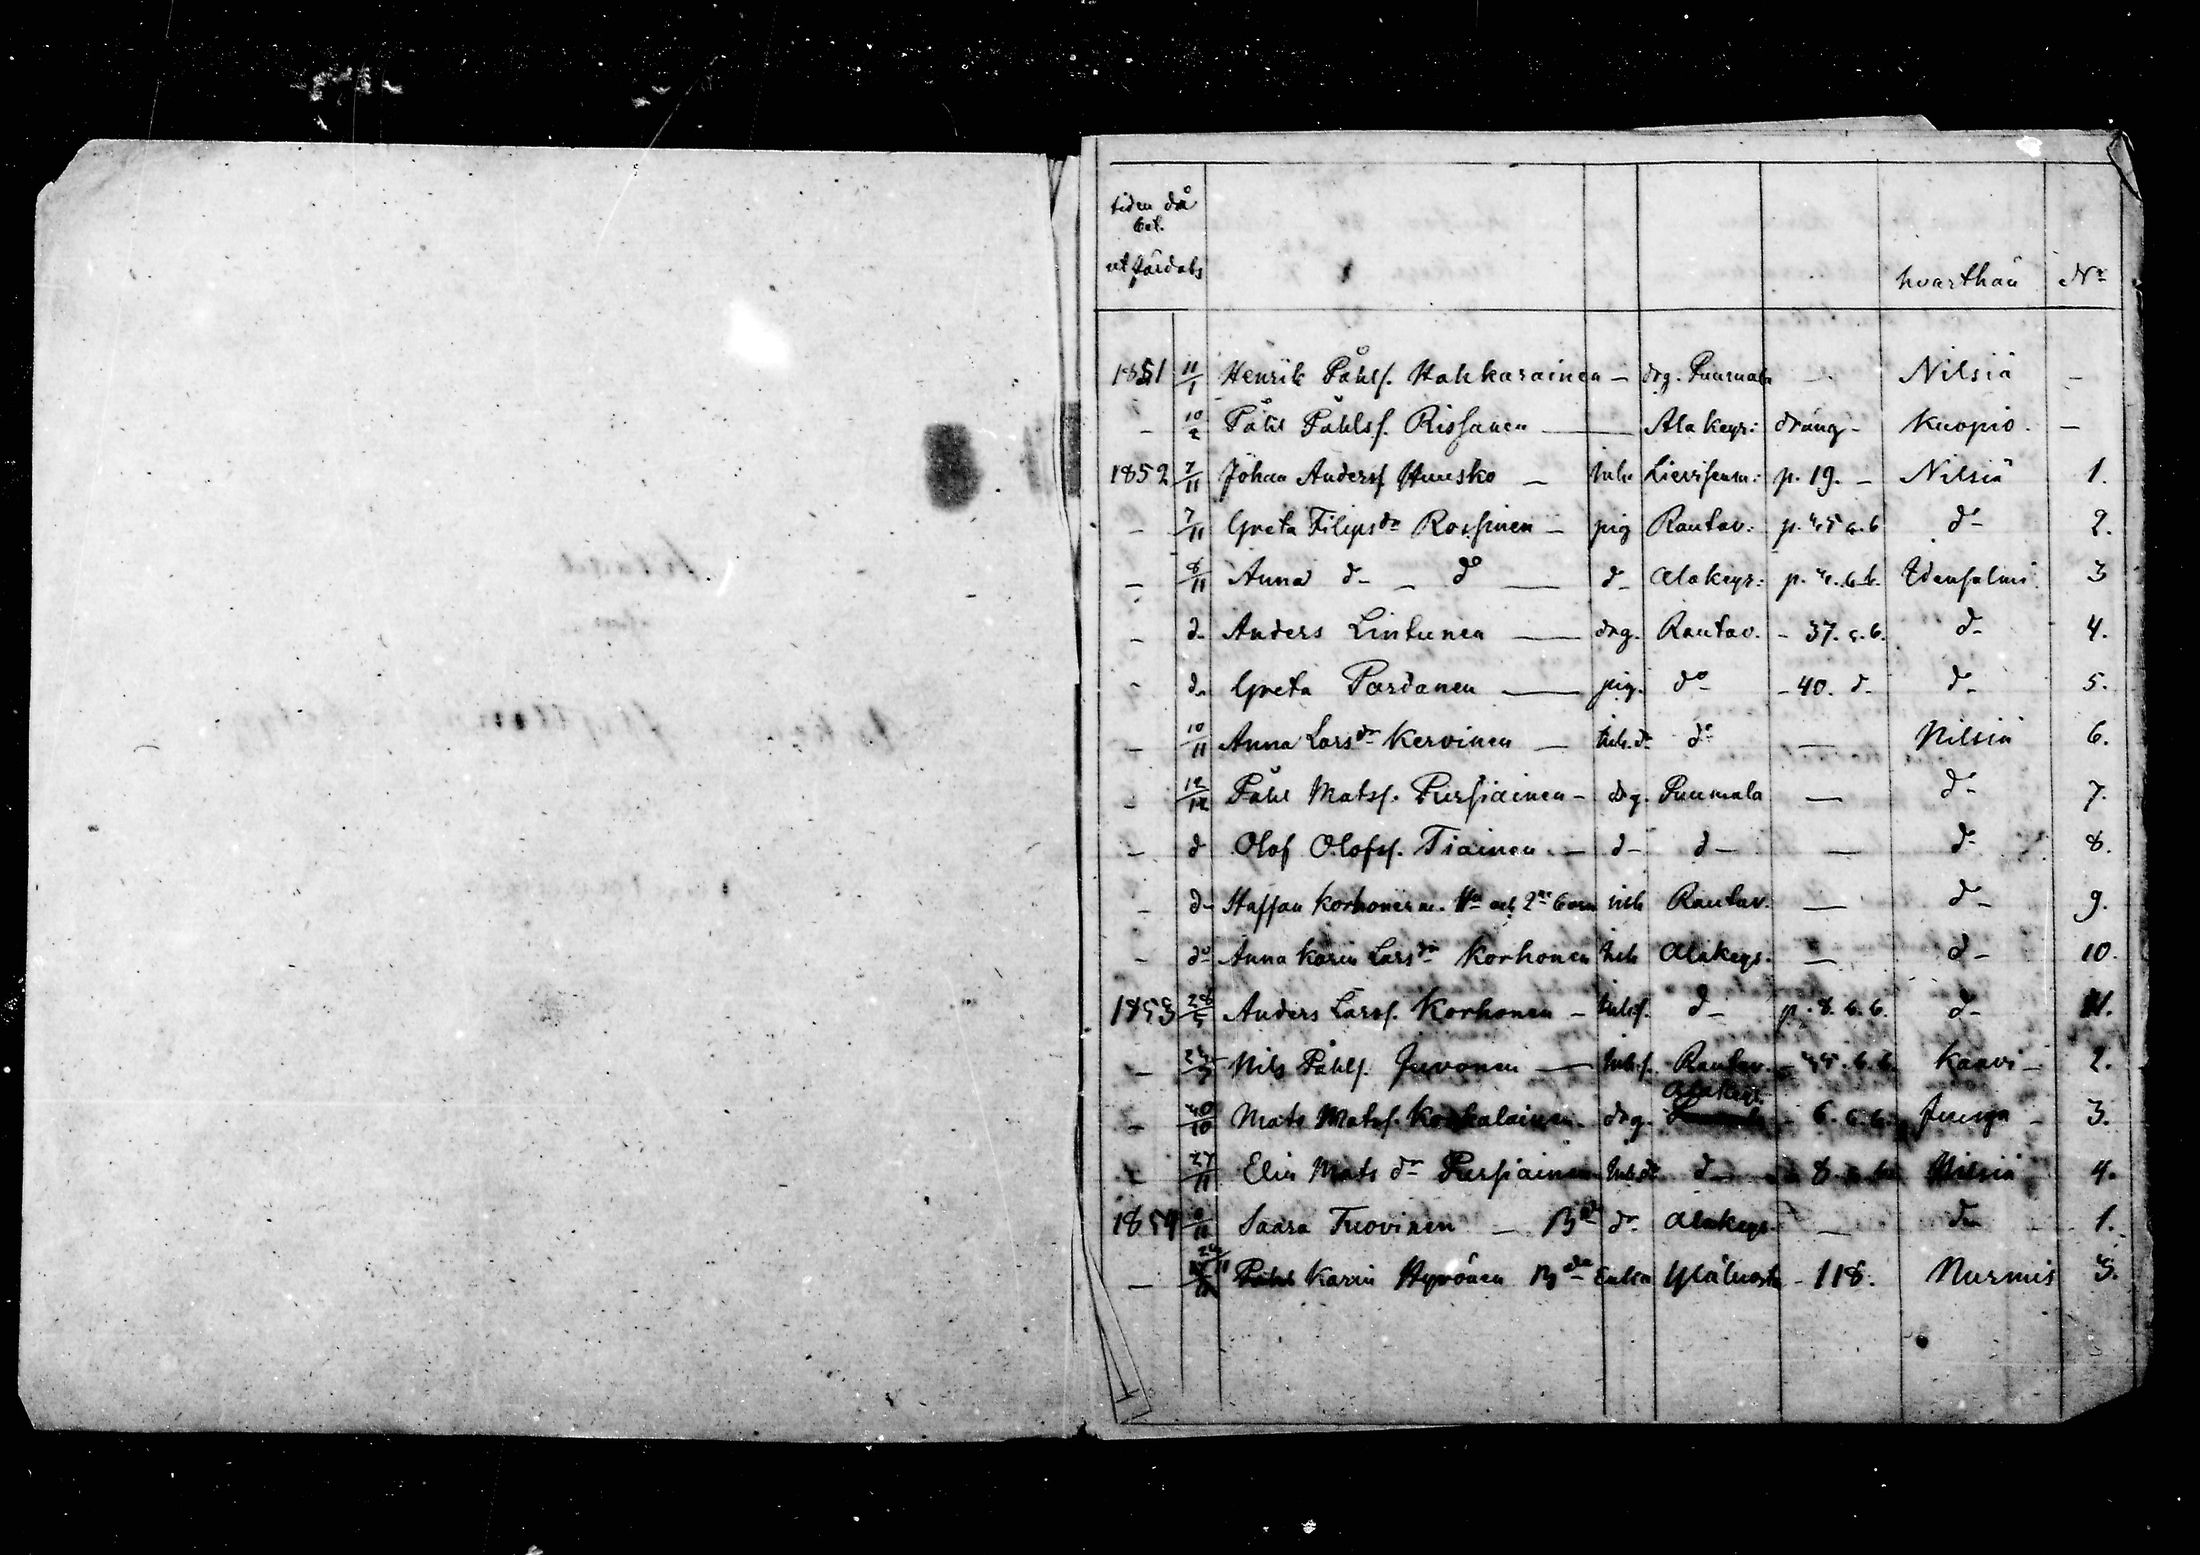 tiden då
bet.
utfärdats hvarthän No
1851 11/1 Henrik Påhlss. Hakkarainen — drg. Puumala — Nilsiä —
— 10/2 Påhl Påhlss. Rissanen — Alakeys: dräng — Kuopio. —
1852 7/11 Johan Anderss. Huusko — Inh. p. 19. — Nilsiä 1.
— 7/11 Greta Filips dr — pig Rautav: p. 45 a.b do 2.
— 8/11 Anna d — do — d Alakeys: Idensalmi 3
— d Anders Lintunen — drg. Rautav. — 37. a.b. d 4.
— d Greta Pardanen — pig. do — 40. d d 5.
— 10/11 Anna Lars dr Kervinen — Inh. dr do — Nilsiä 6.
— 12/12 Påhl Matss. Pursiainen — drg. Puumala — do 7.
— d Olof Olofss. Tiainen — d d — do 8.
— d Staffan Korhonen m. Hu och 2ne barn inh Rautav. — d 9.
— do Anna Karin Lars dr Korhonen Inh Alakeys. — d 10.
1853 28/5 Anders Larss. Korhonen — Inh.s. d p. 8. a.b. d 1.
— Nils Påhlss. Juvonen — Inh.s. Rautav. Kaavi — 2.
Alakeys.
— Mats Matss. drg. — 6. a.b. Juuga — 3.
— 27/11 Elin Mats dr Pursiainen Inh. dr d — 8 Nilsiä 4.
1854 Saara Tuovinen — B dr d Alakeys. — d 1.
— Karin Hyvönen B dr Enka — 118. Nurmis